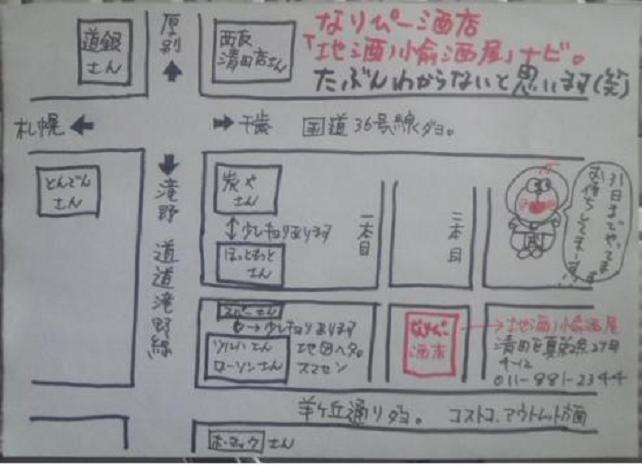 なりぴー酒店
「地酒小愉酒屋」ナビ。
たぶんわからないと思います(笑)
道銀
さん
厚別
西友
清田店さん
札幌
千歳
国道36号線ダヨ。
とんでん
さん
滝野
道道滝野線
炭や
さん
少しキョリあります
ほっともっと
さん
一本目
二本目
31日までやってます
お待ちしてまーす
スパーさん
少しキョリあります
ローソンさん
地図ヘタ。
スマセン
なりぴー
酒店
地酒小愉酒屋
清田区真栄2条2丁目
4-12
011-881-2344
羊ケ丘通りダヨ。
コストコ、アウトレット方面
ホーマックさん